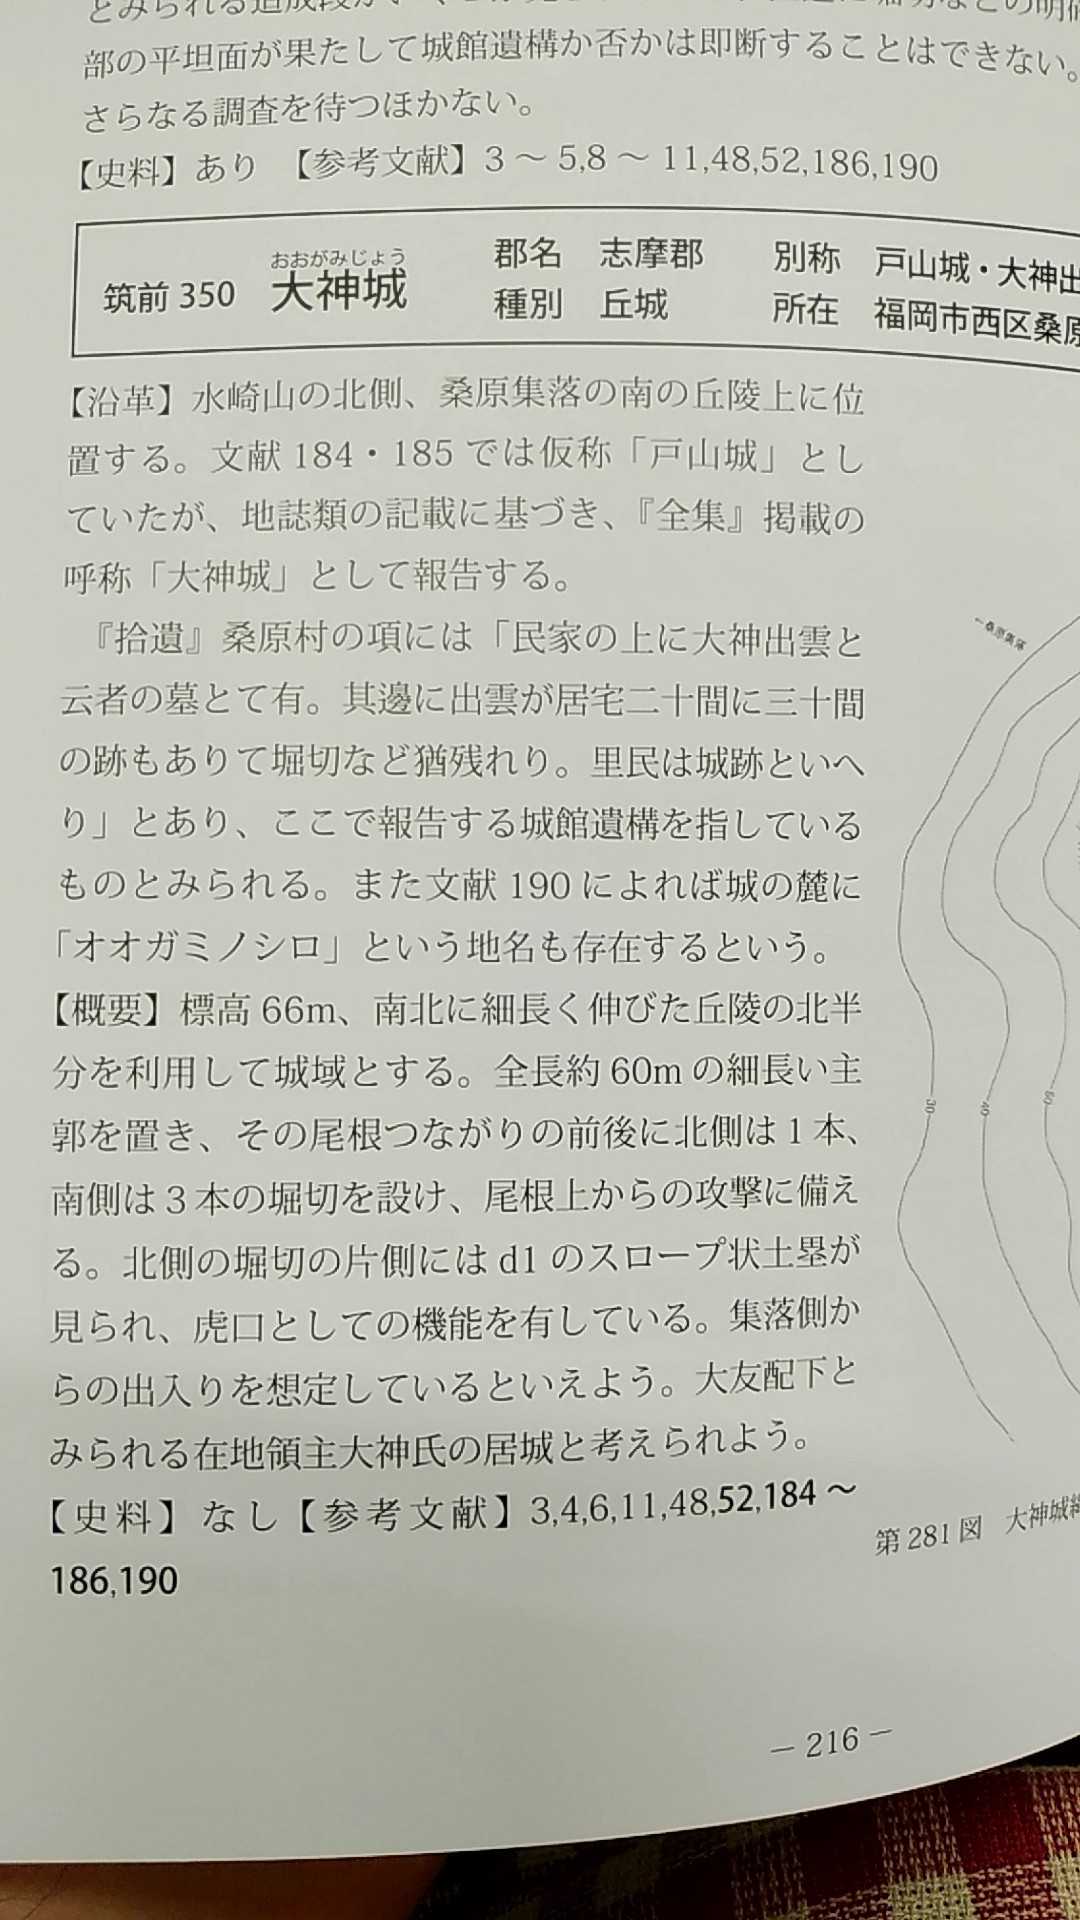 部の平坦面が果たして城館遺構か否かは即断することはできない。
さらなる調査を待つほかない。
【史料】あり 【参考文献】3～5,8～11,48,52,186,190
筑前350 大神城 おおがみじょう 郡名 志摩郡 別称 戸山城・大神出
種別 丘城 所在 福岡市西区桑原
【沿革】水崎山の北側、桑原集落の南の丘陵上に位
置する。文献184・185では仮称「戸山城」とし
ていたが、地誌類の記載に基づき、『全集』掲載の
呼称「大神城」として報告する。
『拾遺』桑原村の項には「民家の上に大神出雲と
云者の墓とて有。其邊に出雲が居宅二十間に三十間
の跡もありて堀切など猶残れり。里民は城跡といへ
り」とあり、ここで報告する城館遺構を指している
ものとみられる。また文献190によれば城の麓に
「オオガミノシロ」という地名も存在するという。
【概要】標高66m、南北に細長く伸びた丘陵の北半
分を利用して城域とする。全長約60mの細長い主
郭を置き、その尾根つながりの前後に北側は1本、
南側は3本の堀切を設け、尾根上からの攻撃に備え
る。北側の堀切の片側にはd1のスロープ状土塁が
見られ、虎口としての機能を有している。集落側か
らの出入りを想定しているといえよう。大友配下と
みられる在地領主大神氏の居城と考えられよう。
【史料】なし【参考文献】3,4,6,11,48,52,184～
186,190
←桑原集落
30
40
50
第281図 大神城
－216－